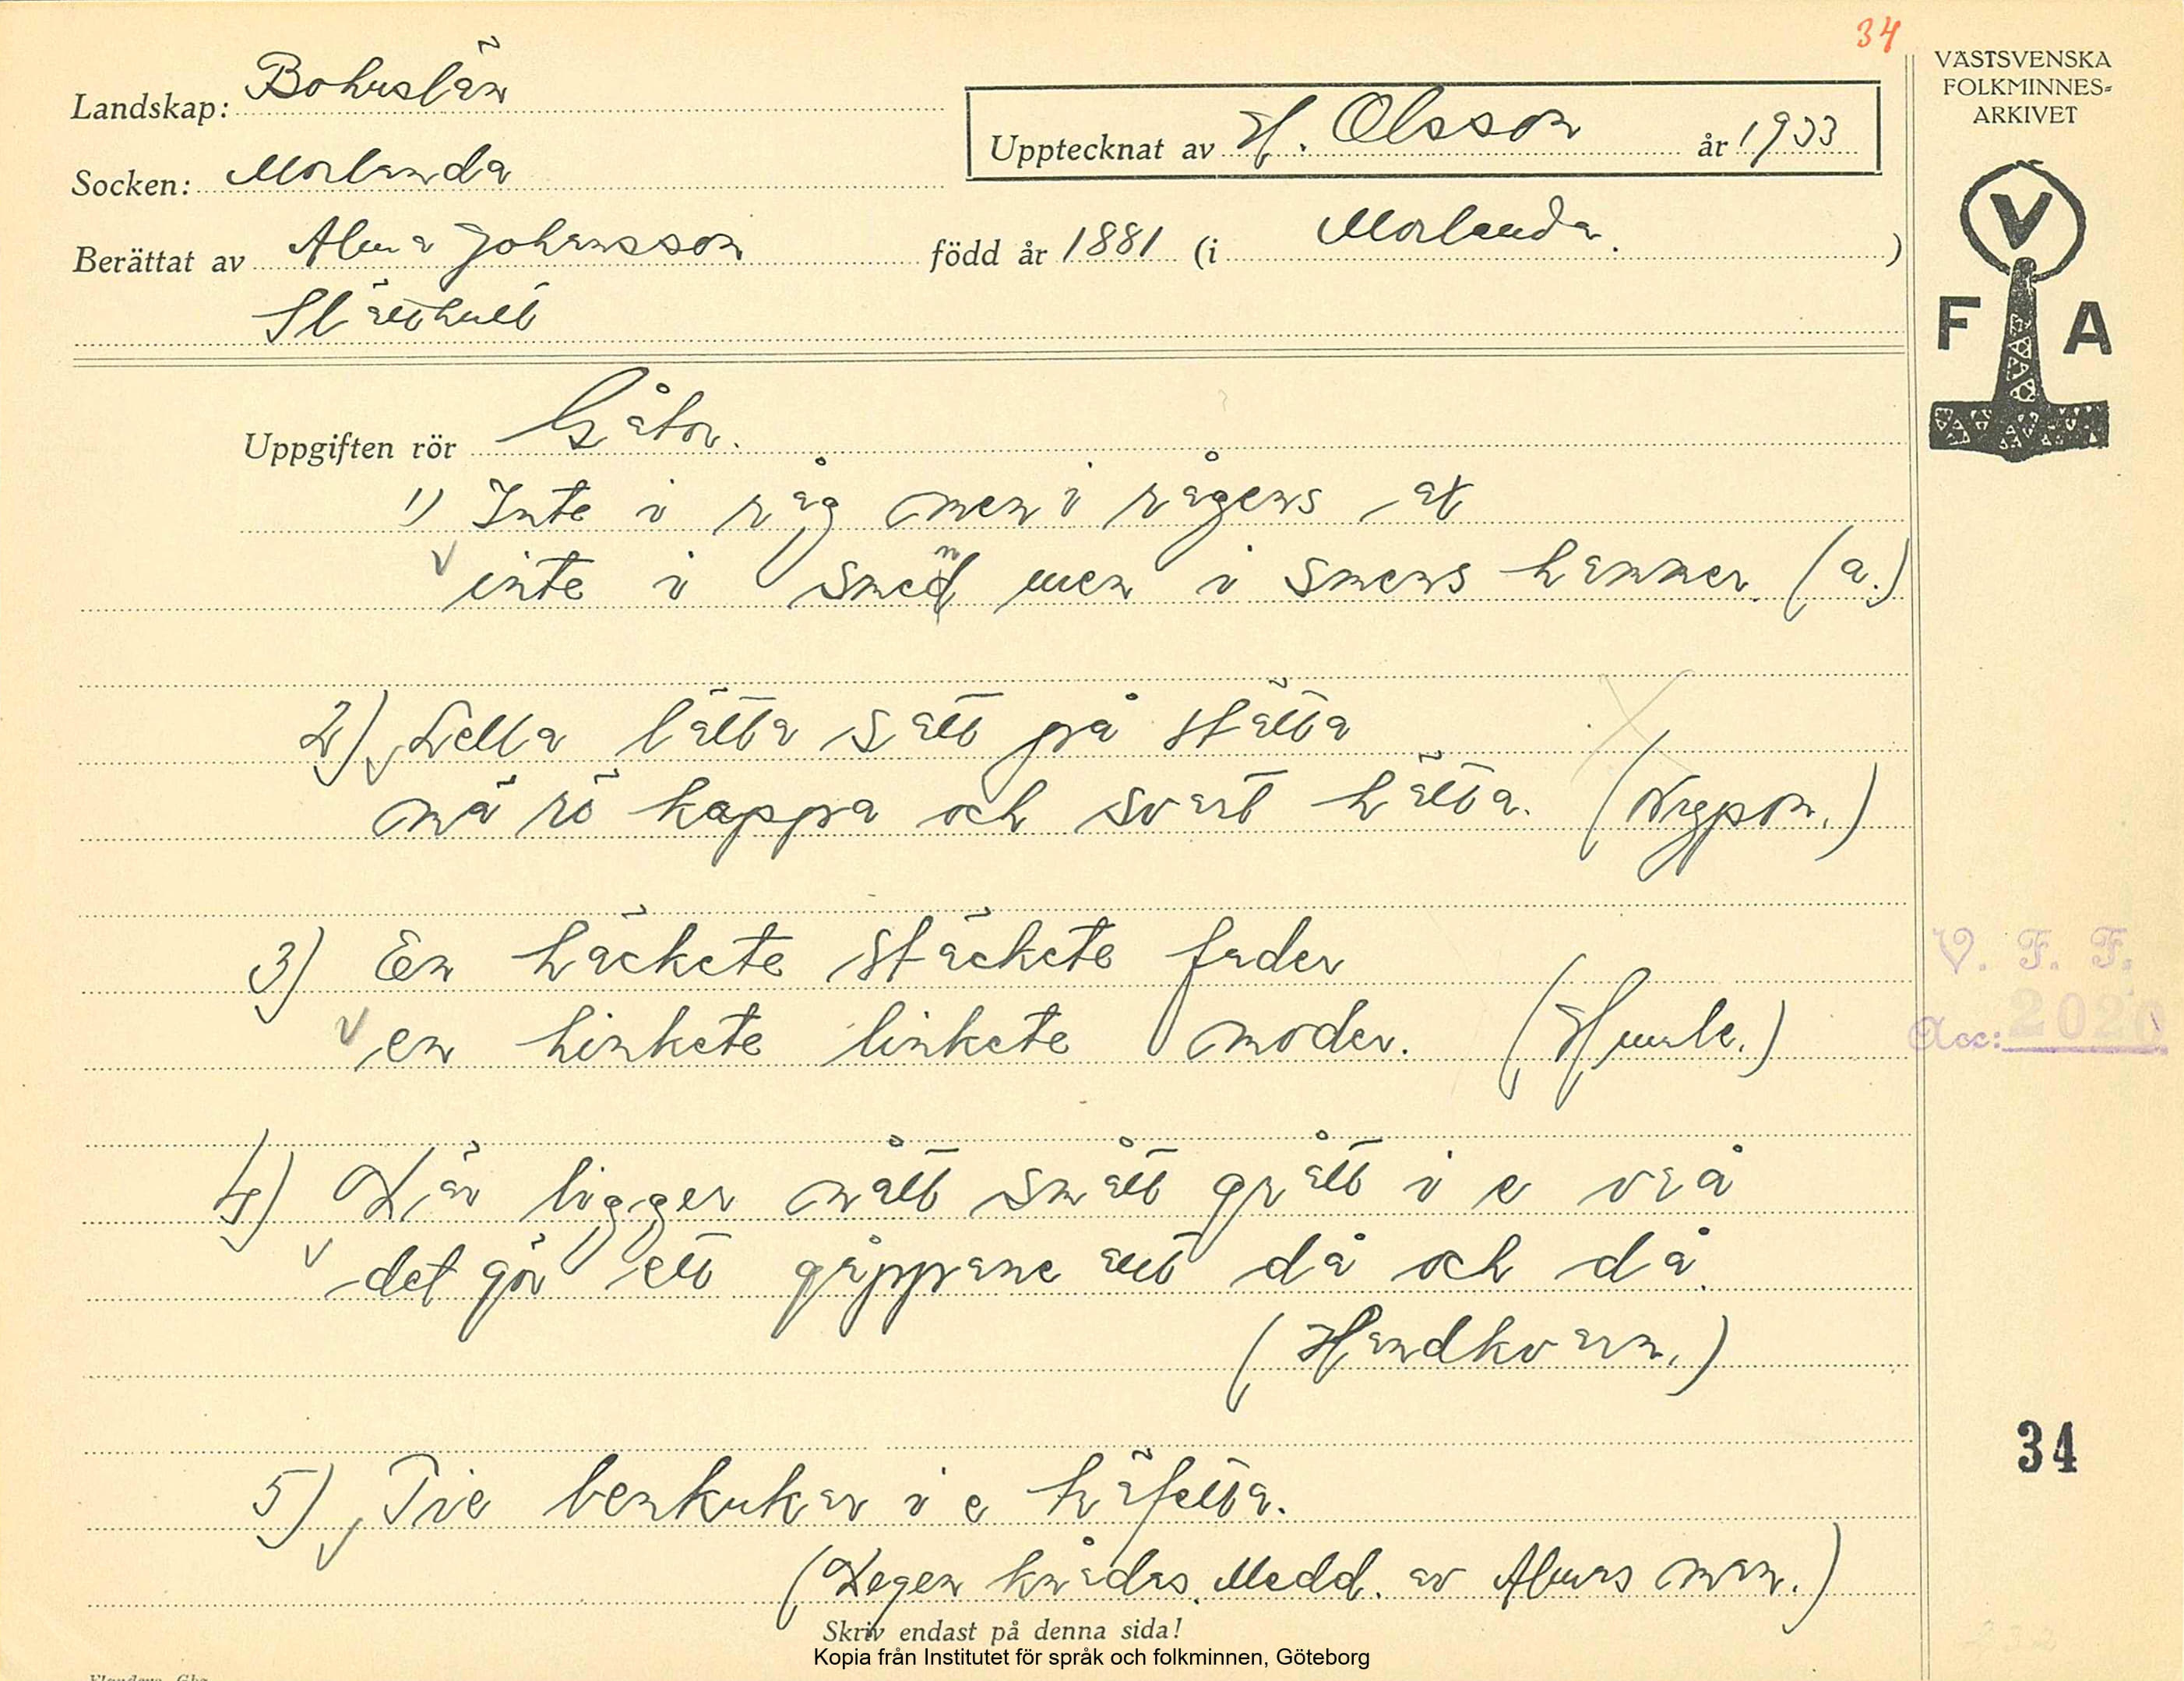 34
Landskap: Bohuslän
Upptecknat av H. Olsson år 1933
Socken: Morlanda
Berättat av Alma Johansson född år 1881 (i Morlanda.)
Slätthult
VÄSTSVENSKA
FOLKMINNES-
ARKIVET
V
F A
Uppgiften rör Gåtor.
1) Inte i råg men i rågens ax
inte i smed men i smens hammer. (a.)
2) Lella lätta satt på slätta
mä rö kappa och svart hätta. (Nypon.)
3) En häckete stäckete fader
en linkete linkete moder. (Humle.)
4) Där ligger nått smått grått i e vrå
det gör ett gåppane att då och då.
(Handkvarn.)
5) Tie benkukar i e häfetta.
(Degen knådas. Medd. av Almas man.)
V. F. F.
Acc: 2020
34
Skriv endast på denna sida!
Kopia från Institutet för språk och folkminnen, Göteborg